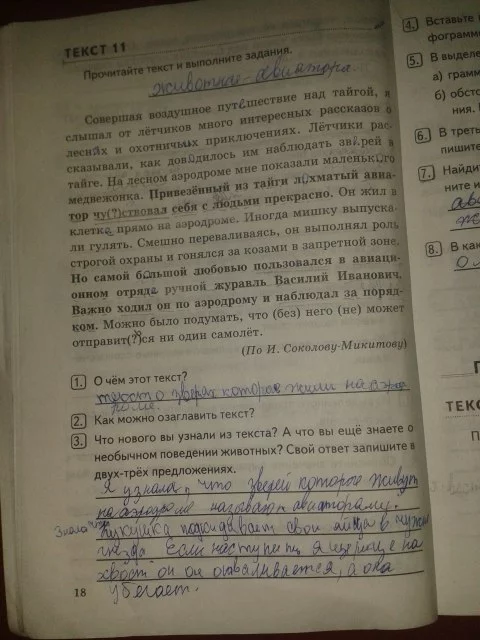 ТЕКСТ 11
Прочитайте текст и выполните задания.
животные-авиаторы
Совершая воздушное путешествие над тайгой, я
слышал от лётчиков много интересных рассказов о
лесных и охотничьих приключениях. Лётчики рас-
сказывали, как доводилось им наблюдать зверей в
тайге. На лесном аэродроме мне показали маленького
медвежонка. Привезённый из тайги лохматый авиа-
тор чу(?)ствовал себя с людьми прекрасно. Он жил в
клетке прямо на аэродроме. Иногда мишку выпуска-
ли гулять. Смешно переваливаясь, он выполнял роль
строгой охраны и гонялся за козами в запретной зоне.
Но самой большой любовью пользовался в авиаци-
онном отряде ручной журавль Василий Иванович.
Важно ходил он по аэродрому и наблюдал за поряд-
ком. Можно было подумать, что (без) него (не) может
отправит(?)ся ни один самолёт.
(По И. Соколову-Микитову)
1. О чём этот текст?
текст о зверях которое жили на аэро
дроме.
2. Как можно озаглавить текст?
3. Что нового вы узнали из текста? А что вы ещё знаете о
необычном поведении животных? Свой ответ запишите в
двух-трёх предложениях.
Я узнала, что зверей которые живут
на аэродроме называют авиаторами.
Знала что кукушка подкидывает свои яйца в чужие
гнёзда. Если наступить ящерице на
хвост он отваливается, а она
убегает.
18
4. Вставьте
фограмм
5. В выделе
а) грамм
б) обсто
ния. 
6. В треть
пишите
7. Найди
ните и
ав
8. В как
ТЕК
П